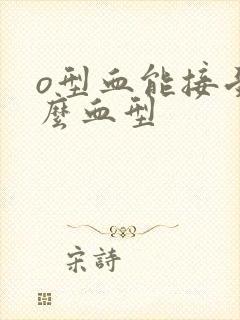 o型血能接受什
麼血型
宋詩